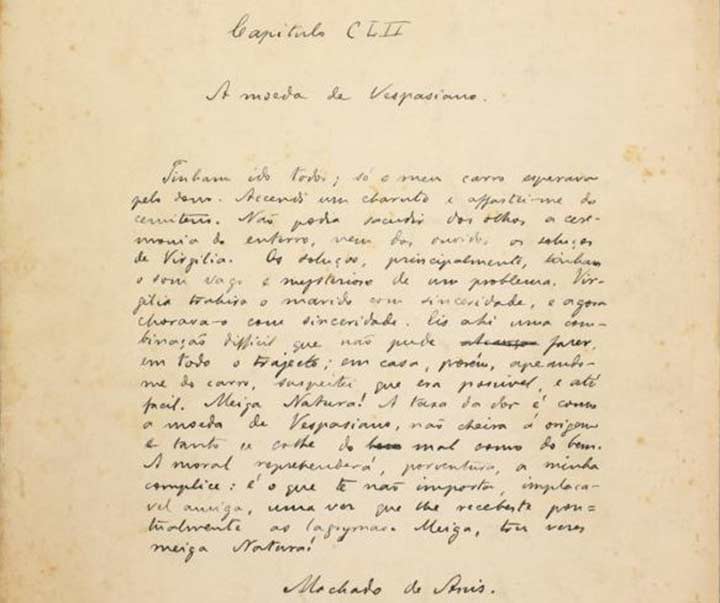 Capitulo CLII
A moeda de Vespasiano.
Tinham ido todos; só o meu carro esperava
pelo dono. Accendi um charuto e affastei-me do
cemiterio. Não podia sacudir dos olhos a cere-
monia do enterro, nem dos ouvidos os soluços
de Virgilia. Os soluços, principalmente, tinham
o som vago e mysterioso de um problema. Vir-
gilia trahira o marido com sinceridade, e agora
chorava-o com sinceridade. Eis ahi uma com-
binação difficil que não pude fazer,
em todo o trajecto; em casa, porém, apeando-
me do carro, suspeitei que era possivel, e até
facil. Meiga Natura! A taxa da dor é como
a moeda de Vespasiano, não cheira á origem
e tanto se colhe do mal como do bem.
A moral reprehenderá, porventura, a minha
complice: é o que te não importa, implaca-
vel amiga, uma vez que lhe recebeste pon-
tualmente as lagrymas. Meiga, tres vezes
meiga Natura!
Machado de Assis.